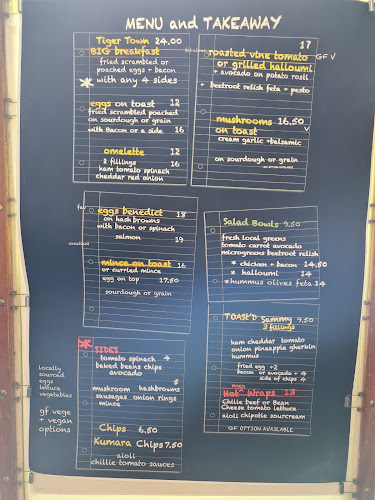 MENU and TAKEAWAY
Tiger Town 24,00
BIG breakfast
fried scrambled or
poached eggs + bacon
* with any 4 sides
eggs on toast 12
fried scrambled poached
on sourdough or grain
with Bacon or a side 16
omelette 12
2 fillings 16
ham tomato spinach
cheddar red onion
17
roasted vine tomato GF V
or grilled halloumi
+ avocado on potato rosti
+ beetroot relish feta + pesto
mushrooms 16.50
on toast V
cream garlic + balsamic
on sourdough or grain
GF OPTION AVAILABLE
eggs benedict 18
on hash browns
with bacon or spinach
salmon 19
mince on toast 16
or curried mince
egg on top 17.50
sourdough or grain
Salad Bowls 9.50
fresh local greens
tomato carrot avocado
microgreens beetroot relish
* chicken + bacon 14.50
* halloumi 14
* hummus olives feta 14
TOAST'D Sammy 9.50
2 fillings
ham cheddar tomato
onion pineapple gherkin
hummus
fried egg +2
bacon or avocado + 4
side of chips 4
Hot Wraps 13
Chillie beef or Bean
Cheese tomato lettuce
aioli chipotle sourcream
GF OPTION AVAILABLE
* SIDES
tomato spinach 4
baked beans chips
avocado
5
mushroom hashbrowns
sausages onion rings
mince
Chips 6.50
Kumara Chips 7.50
aioli
chillie tomato sauces
locally
sourced
eggs
lettuce
vegetables
gf vege
+ vegan
options